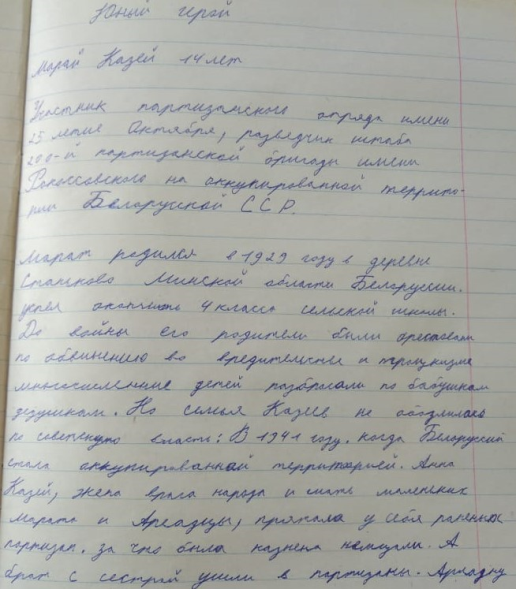 Юный герой
Марай Казей 14 лет
Участник партизанского отряда имени
25 летие Октября, разведчик штаба
200-й партизанской бригады имени
Рокоссовского на оккупированной террито-
рии Белорусской ССР.
Марат родился в 1929 году в деревне
Станьково Минской области Белоруссии.
успел окончить 4 класса сельской школы.
До войны его родители были арестованы
по обвинению во вредительстве и троцкизме
многочисленные детей разбросали по бабушкам
дедушкам. Но семья Казеев не обозлилась
по советскую власть: В 1941 году. когда Белоруссия
стала оккупированной территорией. Анна
Казей, жена врага народа и мать маленьких
Марата и Ариадны, прятала у себя раненых
партизан. за что была казнена немцами. А
брат с сестрой ушли в партизаны. Ариадну